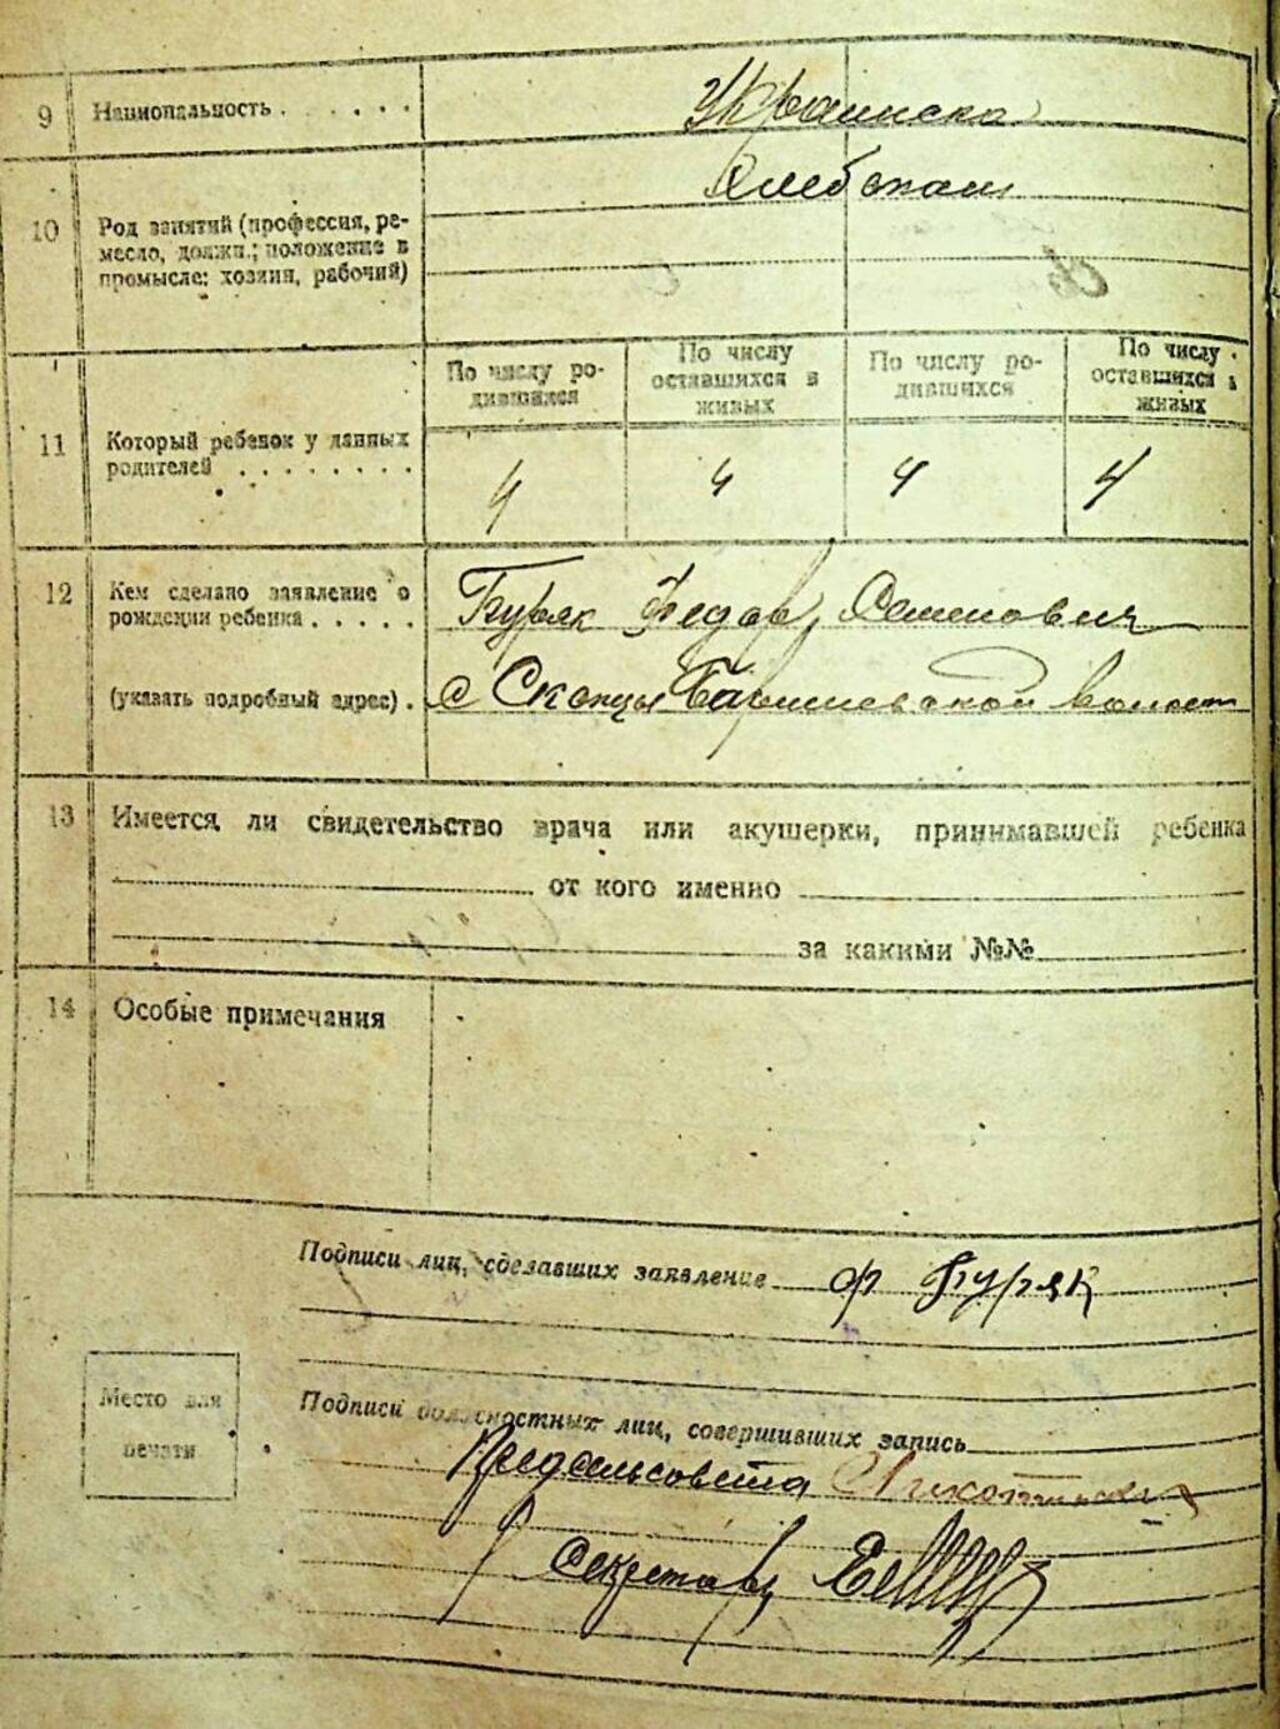 9 Национальность . . . . . . Украинска
10 Род занятий (профессия, ре-
месло, должн.; положение в
промысле: хозяин, рабочий)
Хлебопаш
11 Который ребенок у данных
родителей . . . . . . . .
По числу ро-
дившихся
По числу
оставшихся в
живых
По числу ро-
дившихся
По числу
оставшихся в
живых
4 4 4 4
12 Кем сделано заявление о
рождении ребенка . . . . .
Буряк Федор Семенович
(указать подробный адрес) . с Скопцы Барышевской волост
13 Имеется ли свидетельство врача или акушерки, принимавшей ребенка
от кого именно
за какими №№
14 Особые примечания
Подписи лиц, сделавших заявление Ф Буряк
Подписи должностных лиц, совершивших запись
Предсельсовета
Секретарь
Место для
печати